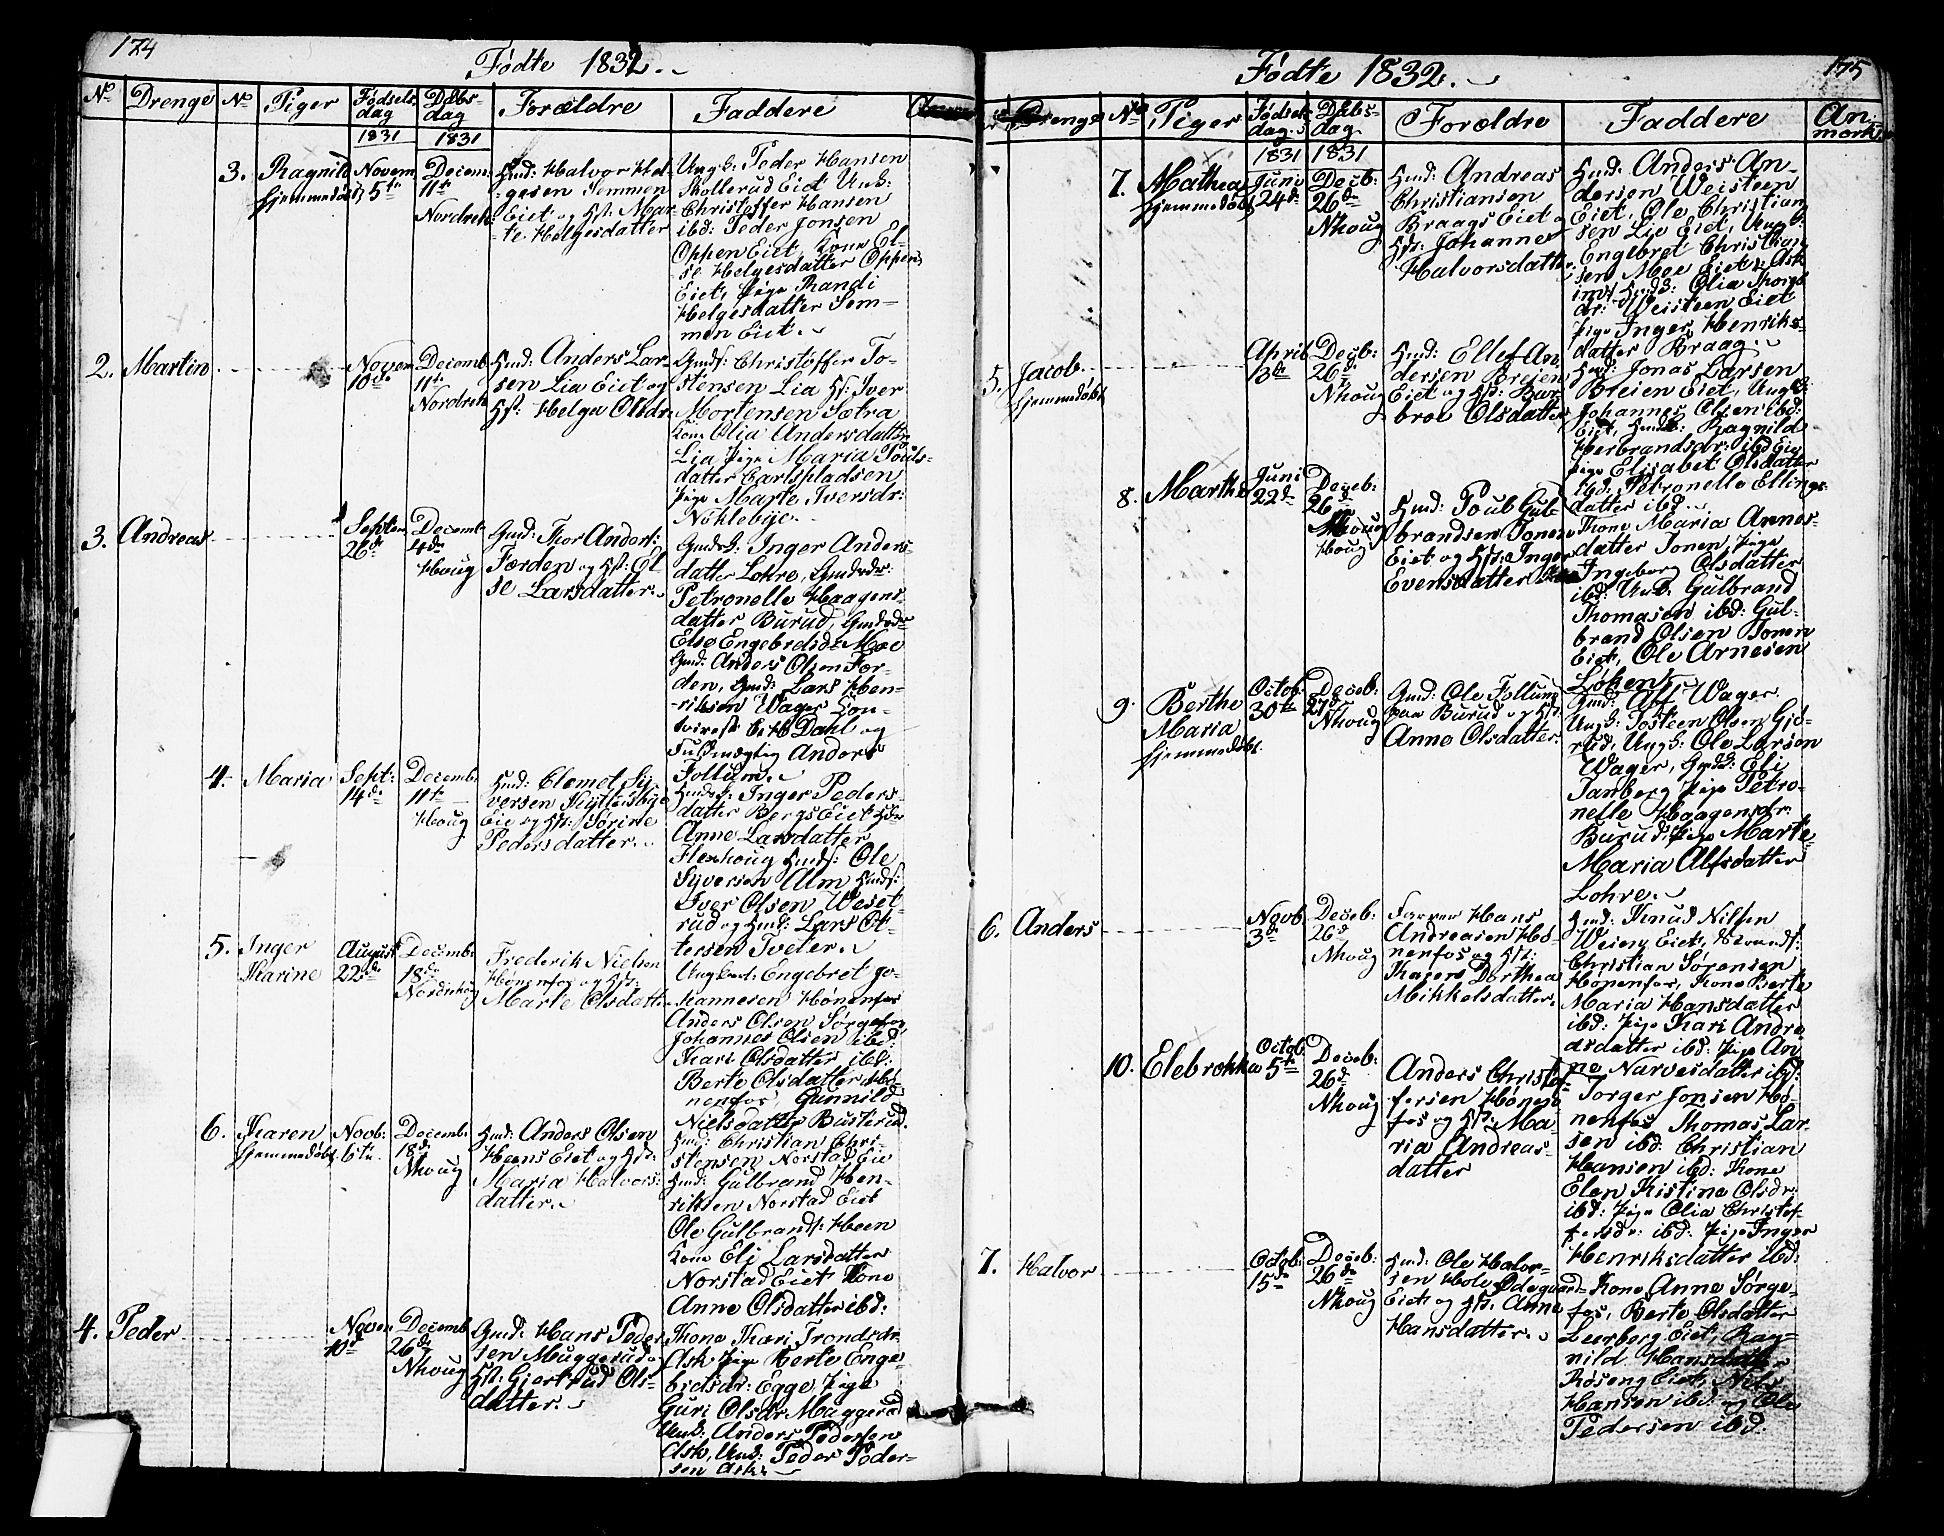 174
Fødte 1832.
No Drenge No Piger Fødsels dag Daabs- dag Forældre Faddere
1831 1831
3. Ragnild
hjemmedøbt
Novem
5te
Decem
11te
Nordreh:
Hmd: Halvor Hel-
gesen Semmen
Eiet og Hst: Mar-
te Helgesdatter
Ungk. Peder Hansen
Skollerud Eiet Unk:
Christoffer Hansen
ibd: Peder Jonsen
Oppen Eiet, Kone El-
se Helgesdatter Oppen
Eiet, Pige Randi
Helgesdatter Sem-
men Eiet.
2. Martin
Novem
10de
Decemb
11te
Nordreh
Hmd: Anders Lar-
sen Lia Eiet og
Hst: Helga Olsdr
Gmds: Christoffer To-
stensen Lia Iver
Mortensen Sætra
Kone Olia Andersdatter
Lia Pige Maria Pouls-
datter Carlspladsen
Pige Marte Iversdr:
Nöklebye.
3. Andreas
Septem
26de
Decemb
4de
Houg
Gmd: Thor Anders:
Færden og Hst: El-
se Larsdatter.
Inger Anders-
datter Lohre,
Petronelle Haagens-
datter Burud,
Else Engebretsdr Moe
Gmd: Anders Olsen Fær-
den, Gmd: Lars Hen-
riksen Wager
Dahl og
Fuldmægtig Anders
Follum.
4. Maria
Sept:
14de
Decemb:
11te
Houg
Hmd: Clemet Sy-
versen
Eie og Hst: Sörine
Pedersdatter.
Inger Peders-
datter Bergs Eiet
Anne Larsdatter
Flexhoug Hmds: Ole
Syversen Alm Hmds:
Iver Olsen Weset-
rud og Hmd: Lars Ot-
tersen Tveter.
5. Inger
Karine
August
22de
Decemb:
18de
Nordrehoug
Frederik Nielsen
Hönenfos og Hst:
Marte Olsdatter
Ungkarl: Engebret Jo-
hannesen Hönenfos
Anders Olsen Sørgefos
Johannes Olsen ibd:
Kari Olsdatter ibd:
Berte Olsdatter Hö-
nenfos, Gunnild
Nielsdatter Busterud.
6. Karen
hjemmedøbt
Novb:
6te
Decemb:
18de
Nhoug
Hmd: Anders Olsen
Heens Eiet og Hst:
Maria Halvors-
datter.
Hmd: Christian Chri-
stensen Norstad Eie
Hmd: Gulbrand Hen-
riksen Norstad Eiet
Ole Gulbrands: Heen
Kone Eli Larsdatter
Norstad Eiet Kone
Anne Olsdatter ibd:
4. Peder
Novem
10de
Decemb
26de
Nhoug
Gmd: Hans Peder
sen Muggerud og
Hst: Gjertrud Ols-
datter.
Kone Kari Trondsdr
Ask Pige Berte Enge-
bretsdr: Egge, Pige
Guri Olsdr Muggerud
Unk: Anders Pedersen
Ask, Unk: Peder Peder-
sen Ask.
175
Fødte 1832.
Drenge No Piger Fødsels dag. Daabs- dag Forældre Faddere An- mærk
1831 1831
7. Mathea
hjemmedøbt
Juni
24de
Decb:
26de
Nhoug
Hmd: Andreas
Christiansen
Braags Eiet og
Hst: Johanne
Halvorsdatter.
Hmd: Anders An-
dersen Weisteen
Eiet, Ole Christian
sen Lie Eiet, Ungk:
Engebret Christian
sen Moe Eiet Ask
Olia Thorge
dr: Weisteen Eiet
Pige Inger Henriks-
datter Braag.
5. Jacob
hjemmedøbt
April
13de
Decb:
26de
Nhoug
Hmd: Ellef An
dersen Breien
Eiet og Hst: Bar-
broe Olsdatter
Hmd: Jonas Larsen
Breien Eiet, Ungk:
Johannes Olsen ibd:
Eiet, Ragnild
Herbrandsdr: ibd Eie
Pige Elisabet Olsdatter
ibd: Petronelle Ellings-
datter ibd.
8. Marthe
Juni
22de
Deceb:
26de
Nhoug
Houg
Hmd: Poul Gul-
brandsen Tonen
Eiet og Hst: Inger
Evensdatter
Kone Maria Annes-
datter Tonen, Pige
Ingeborg Olsdatter
ibd: Unk. Gulbrand
Thomasen ibd: Gul-
brand Olsen Tonen
Eiet, Ole Arnesen
Löken.
9. Berthe
Maria
hjemmedøbt
Octob:
30te
Deceb:
27de
Nhoug
Gmd: Ole Follum
paa Burud og Hst:
Anne Olsdatter.
Gmd: Alf Wager
Ungk: Tosteen Olsen Gjö-
rud, Ungk: Ole Larsen
Wager, Eli
Tanberg Pige Petro-
nelle Haagensdr:
Burud: Pige Marte
Maria Alfsdatter
Lohre.
6. Anders
Novb
3de
Deceb:
26d
Nhoug
Hans
Andreasen Hö-
nenfos og Hst:
Karen Dorthea
Mikkelsdatter.
Hmd: Knud Nilsen
Weien Eiet,
Christian Sörensen
Hönenfos, Kone Berte
Maria Hansdatter
ibd: Pige Kari Andre
asdatter ibd: Pige An
ne Narvesdatter ibd:
10. Elebrekke
Octob
5te
Deceb:
26d
Nhoug
Anders Christof-
fersen Hönen-
fos og Hst: Ma-
ria Andreas-
datter
Torger Jonsen Hö-
nenfos Thomas Lar
sen ibd: Christian
Hansen ibd: Kone
Elen Kistine Olsdr:
ibd: Pige Olia Christof-
fersdr: ibd: Pige Inger
Henriksdatter ibd:
7. Halvor
Octob:
15de
Deceb:
26de
Nhoug
Hmd: Ole Halvor-
sen Hole Ødegaard
Eiet og Hst: Anne
Hansdatter.
Kone Anne Sørge-
fos, Berte Olsdatter
Leerberg Eiet, Rag-
nild Hansdatter
Roseng Eiet, Nels
Hansen ibd: og Ole
Pedersen ibd: